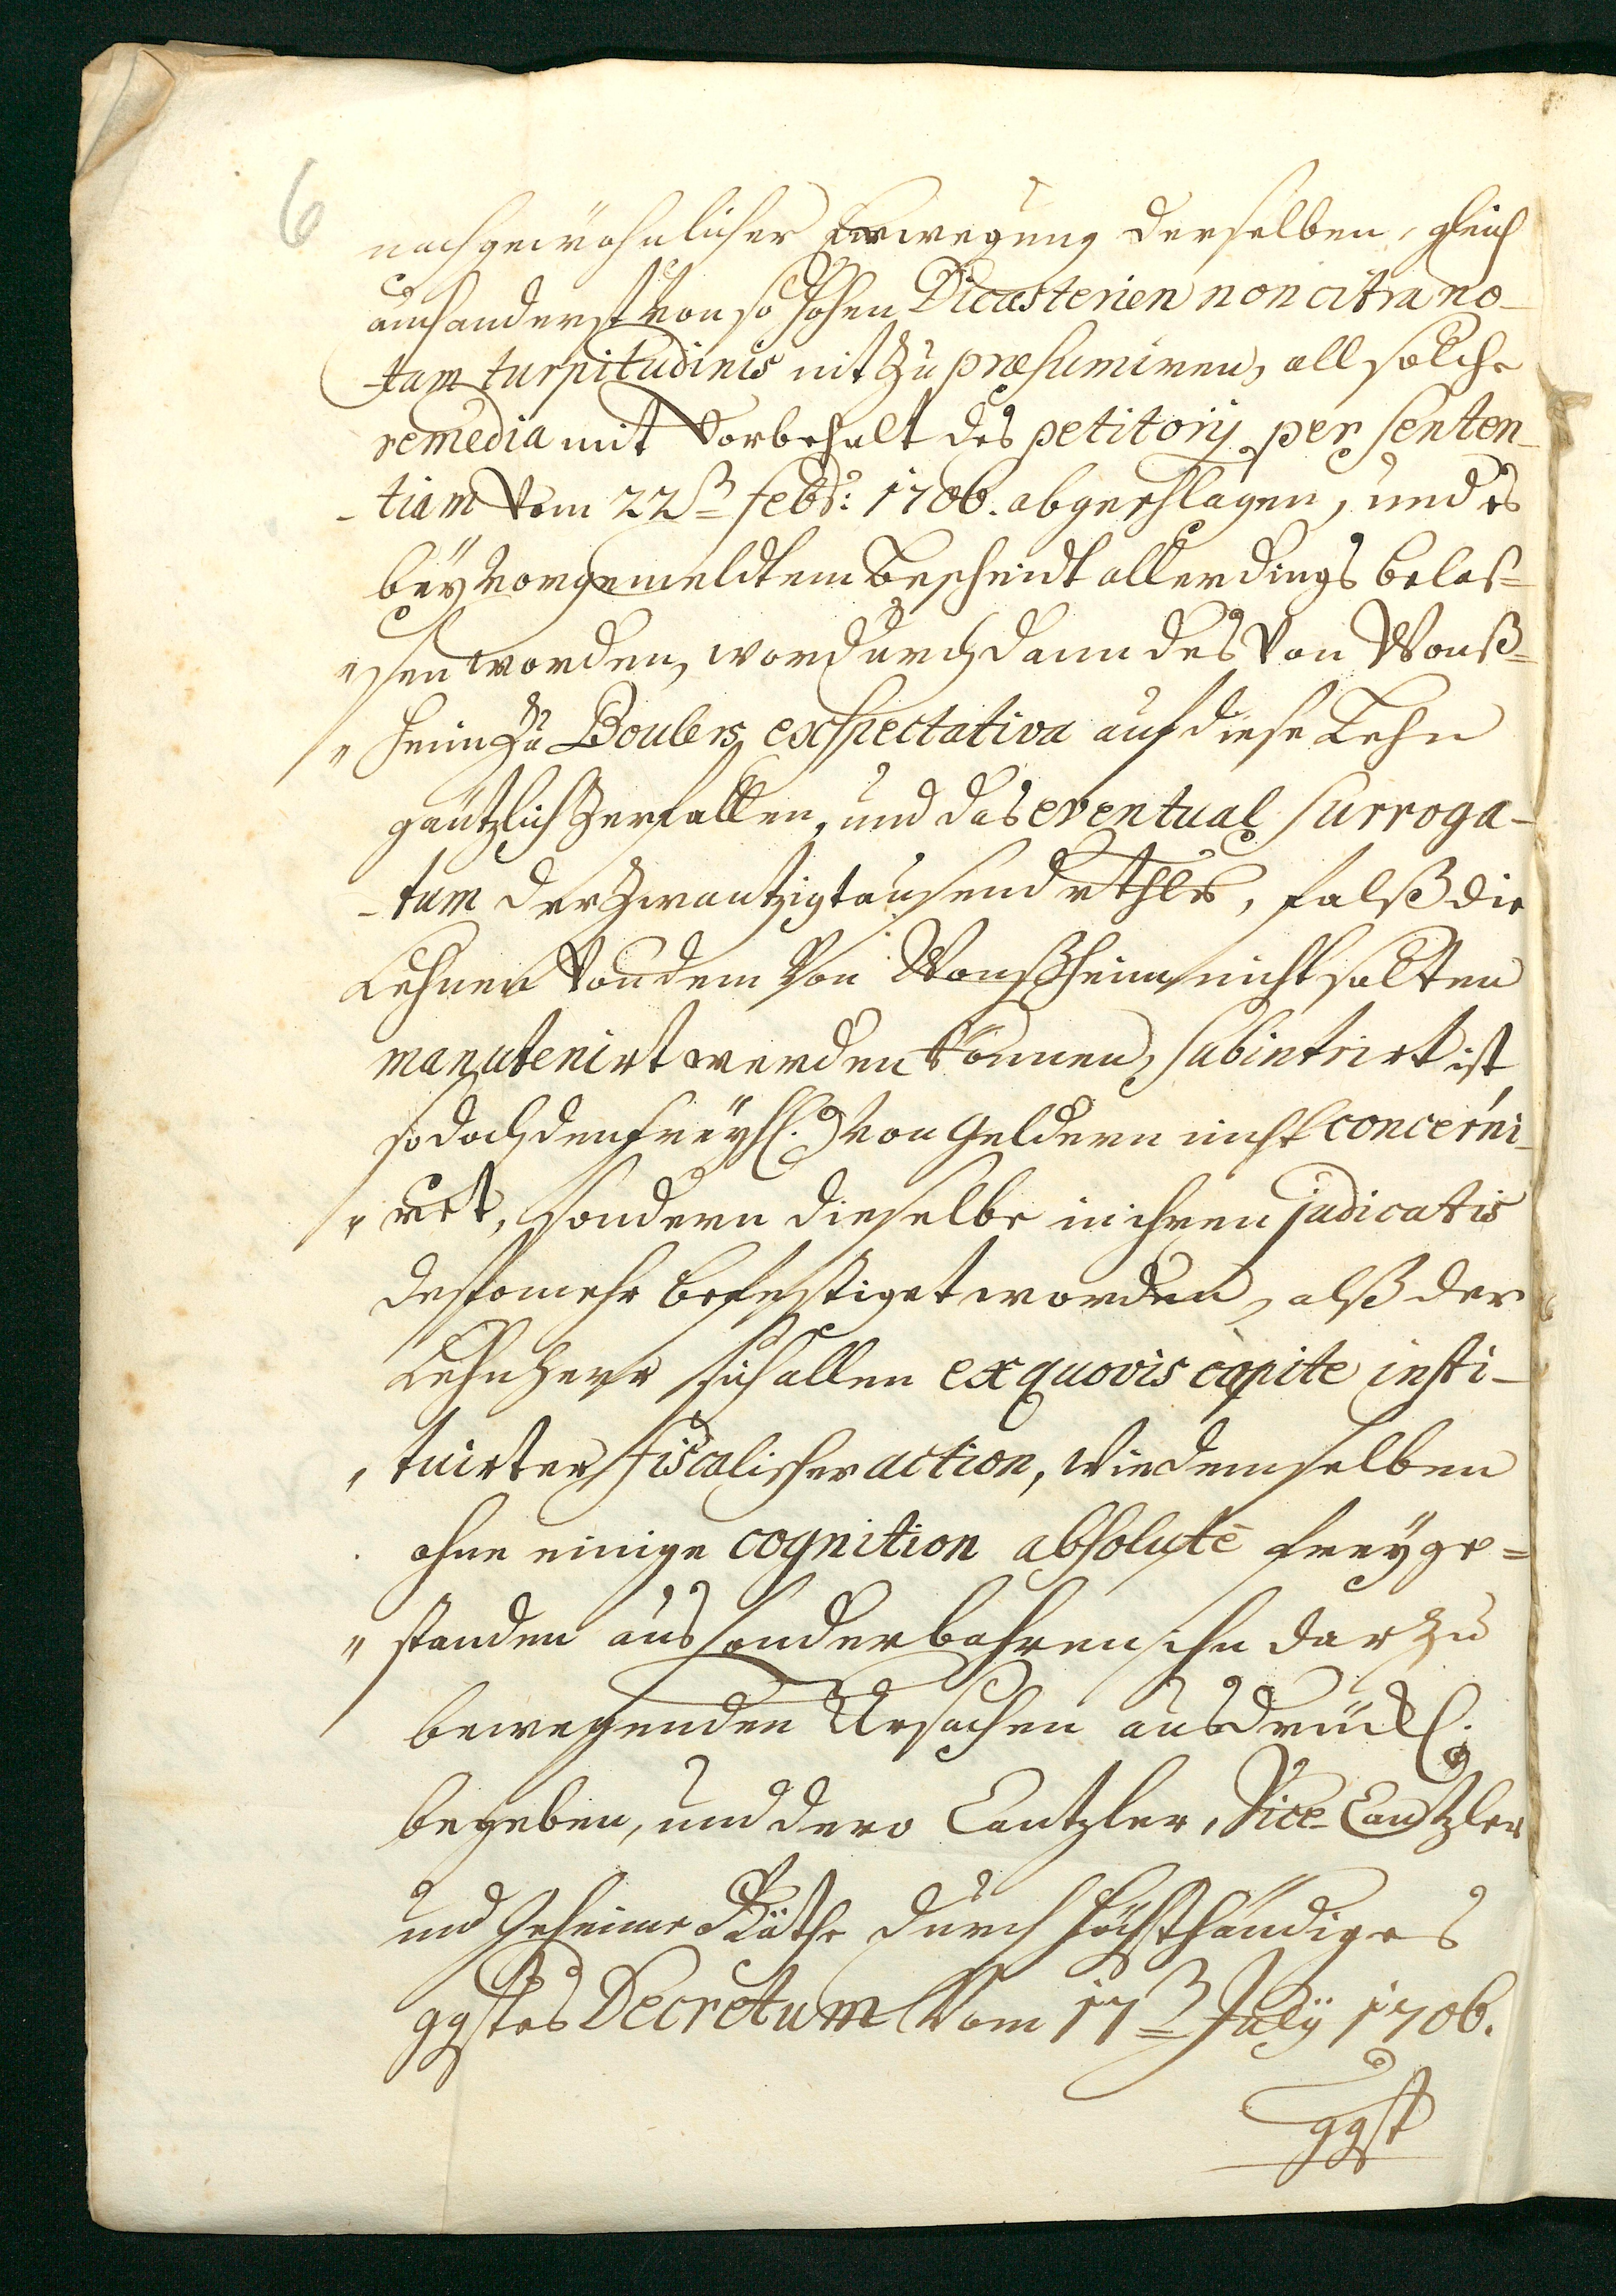 6
nachgewöhnlicher Erwegung derselben, gleich
auch anderst von so hohen Dicasterien non citra no-
-tam turpitudinis nit zu præsumiren, all solche
remedia mit Vorbehalt des petitorij per senten-
-tiam Vom 22ß= febr: 1706. abgeschlagen, und es
bey vorgemeldtem Bescheidt allerdings belas=
"sen worden, wordurch dann des Von Wonß=
"heim zu Boulers exspectativa auf diese Lehn
gäntzlich zerfallen, und das eventual surroga-
-tum der zwantzigtausend rthlr, falß die
Lehnen Von dem Von Wonßheim nicht solten
manutenirt werden können, subintrirt ist,
so doch den freyh. von Geldern nicht concerni-
"ret, sondern dieselbe in ihren judicatis
destomehr befestiget worden, alß der
Lehnherr sich allen ex quovis capite insti-
"tuirter fiscalischer action, wie demselben
ohne einige cognition absolutè freyge=
"standen aus sonderbahren ihn darzu
bewegenden Ursachen ausdrückl.
begeben, und dero Cantzler, Vice-Cantzler
und Geheime Räthe durch höchsthändiges
ggstes Decretum Vom 17ß= July 1706.
ggst